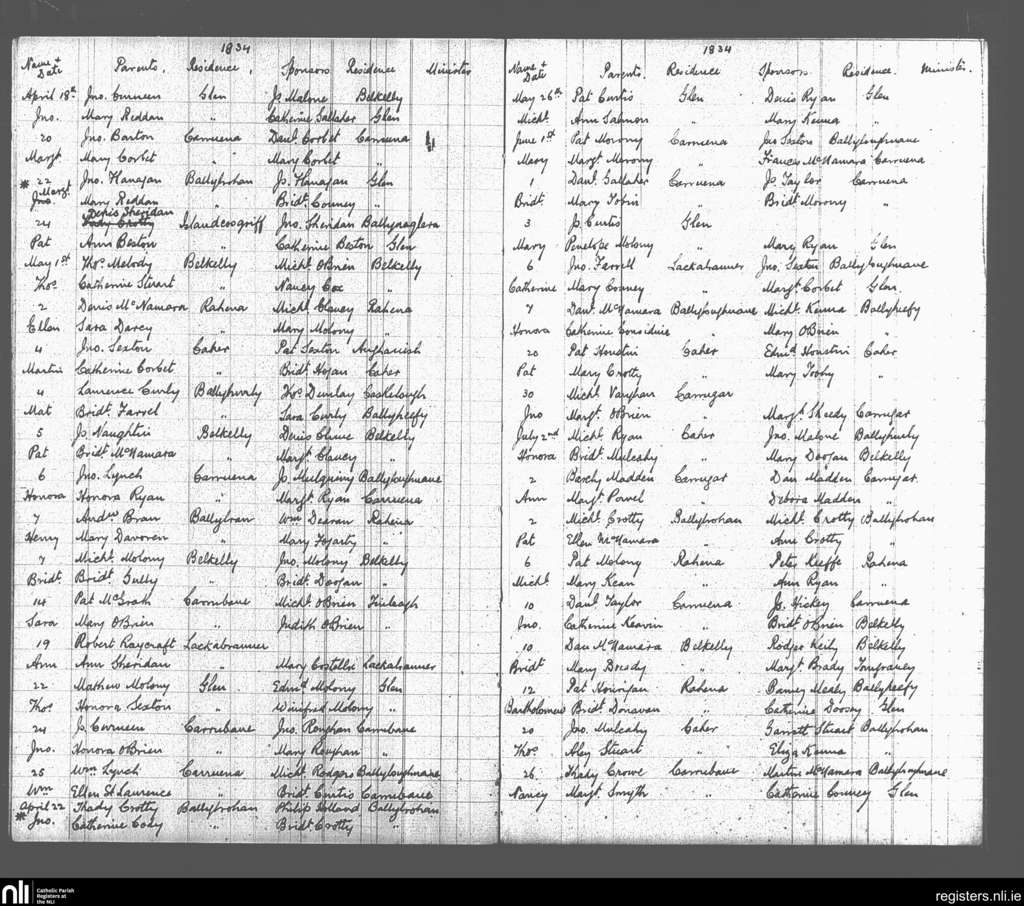 1834
Name + Date Parents, Residence, Sponsors Residence Minister
April 18th Jno. Curneen Glen Js Malone Belkelly
Jno. Mary Reddan " Catherine Gallaher Glen
20 Jno. Barton Carruena Danl. Corbet Carruena
Margt. Mary Corbet " Mary Corbet "
* 22 Jno. Hanagan Ballybrohan Js. Hanagan Glen
Margt Jno. Mary Reddan " Bridt. Couney "
Denis Sheridan
24 Thady Crotty Islandcosgriff Jno. Sheridan Ballynaglera
Pat Ann Beston " Catherine Beston Glen
May 1st Thos. Melody Belkelly Michl. OBrien Belkelly
Thos. Catherine Stuart " Nancy Cox "
2 Denis McNamara Rahena Michl. Clancy Rahena
Ellen Sara Darcy " Mary Molony "
4 Jno. Sexton Caher Pat Sexton Aughanish
Martin Catherine Corbet " Bridt. Hogan Caher
4 Laurence Curly Thos. Dunlay
Mat Bridt. Farrel " Sara Curly Ballykeefy
5 Js. Naughtin Belkelly Denis Clune Belkelly
Pat Bridt McNamara " Margt. Clancy "
6 Jno. Lynch Carruena J. Mulquiny Ballyloughnane
Honora Honora Ryan " Margt. Ryan Carruena
7 Andw Bran Ballybran Wm Dearan Rahena
Henry Mary Davoren " Mary Fogarty "
7 Michl. Molony Belkelly Jno. Molony Belkelly
Bridt. Bridt. Gully " Bridt. Doogan "
14 Pat McGrath Carrubane Michl. OBrien Finleagh
Sara Mary OBrien " Judith OBrien "
19 Robert Raycraft Lackabranner
Ann Ann Sheridan " Mary Costelloi Lackabanner
22 Mathew Molony Glen Edmd Molony Glen
Thos. Honora Sexton " Winifred Molony "
24 J. Curneen Carrubane Jno. Roughan Carrubane
Jno. Honora OBrien " Mary Roughan "
25 Wm. Lynch Carruena Michl. Rodgers Ballyloughnane
Wm Ellen St Laurence " Bridt. Curtis Carrubane
April 22 Thady Crotty Ballybrohan Philip Holland Ballybrohan
* Jno. Catherine Cody " Bridt. Crotty "
1834
Name + Date Parents. Residence Sponsors. Residence. Minister.
May 26th Pat Curtis Glen Denis Ryan Glen
Michl. Ann Salmon " Mary Kenna "
June 1st Pat Morony Carruena Jno Sexton Ballyloughnane
Mary Margt Morony " Frances McNamara Carruena
1 Danl. Gallaher Carruena Js Taylor Carruena
Bridt. Mary Tobin " Bridt Morony "
3 J. Curtis Glen
Mary Penelope Molony " Mary Ryan Glen
6 Jno. Farrell Lackabanner Jno. Sexton Ballyloughnane
Catherine Mary Cooney " Margt Corbet Glen.
7 Danl. McNamara Ballyloughnane Michl. Kenna Ballykeefy
Honora Catherine Considine " Mary OBrien "
20 Pat Houstin Caher Edmd Houstin Caher
Pat Mary Crotty " Mary Toohy "
30 Michl. Vaughan Carrugar
Jno Margt. OBrien Margt. Sheedy Carrugar
July 2nd Michl. Ryan Caher Jno. Malone
Honora Bridt Mulcahy " Mary Doogan Belkelly
2 Barthy Madden Carrugar Dan Madden Carrugar.
Ann Margt. Powel Debora Madden "
2 Michl. Crotty Ballybrohan Michl. Crotty Ballybrohan
Pat Ellen McNamara " Ann Crotty "
6 Pat Molony Rahena Peter Keeffe Rahena
Michl. Mary Kean " Ann Ryan "
10 Danl Taylor Carruena Js. Hickey Carruena
Jno. Catherine Kearin " Bridt OBrien Belkelly
10 Dan McNamara Belkelly Rodger Keily Belkelly
Bridt Mary Dready " Margt. Brady Tomgraney
12 Pat Hourigan Rahena Daniey Mealy Ballykeefy
Bartholomew Bridt Donavan " Catherine Dorsey Glen
20 Jno. Mulcahy Caher Garratt Stuart Ballybrohan
Thos. Abey Stuart " Eliza Kenna "
26. Thady Crowe Carrubane Martin McNamara Ballyloughnane
Nancy Margt. Smyth " Catherine Couney Glen
nli Catholic Parish
Registers at
the NLI
registers.nli.ie